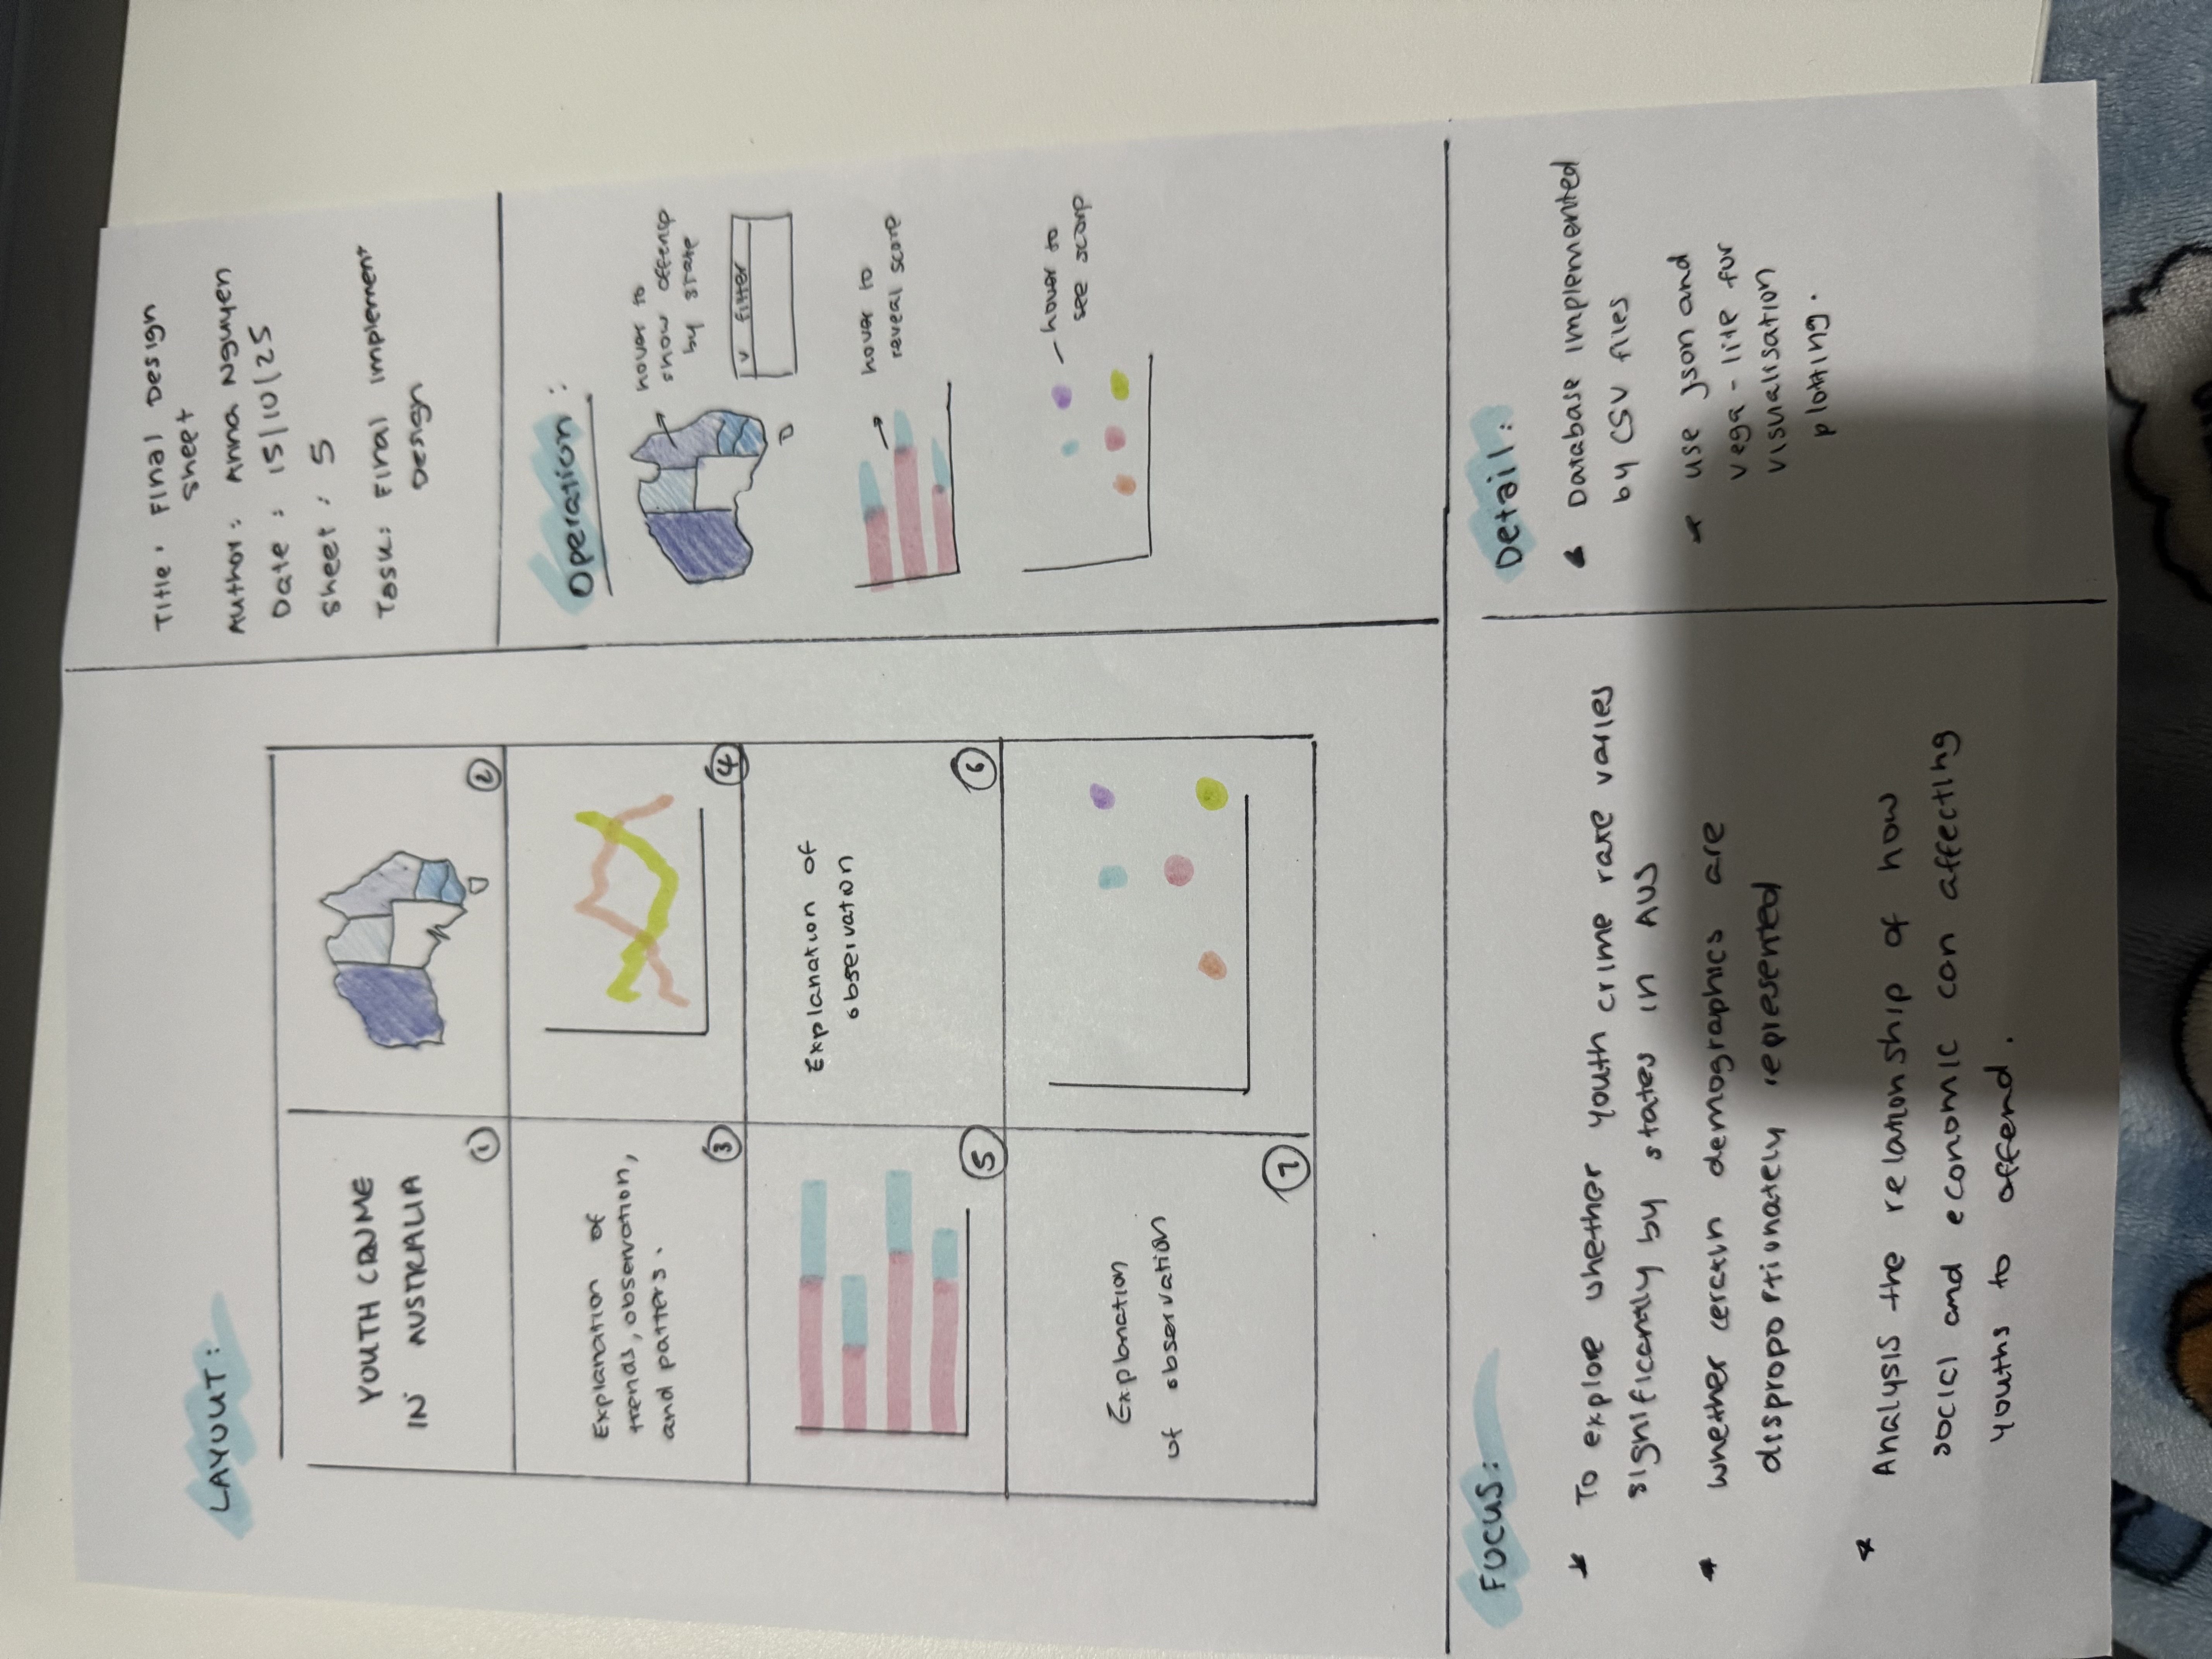 LAYOUT:
YOUTH CRIME
IN AUSTRALIA
1
2
Explanation of
trends, observation,
and patters.
3
4
5
Explanation of
observation
6
Explanation
of observation
7
Title: Final Design
Sheet
Author: Anna Nguyen
Date: 15/10/25
Sheet: 5
Task: Final Implement
Design
Operation:
hover to
show offence
by state
v filter
hover to
reveal score
hover to
see score
FOCUS:
To explore whether youth crime rate varies
significantly by states in AUS
whether certain demographics are
disproportionately represented
Analysis the relationship of how
social and economic can affecting
youths to offend.
Detail:
Database implemented
by CSV files
use json and
vega-lite for
visualisation
plotting.